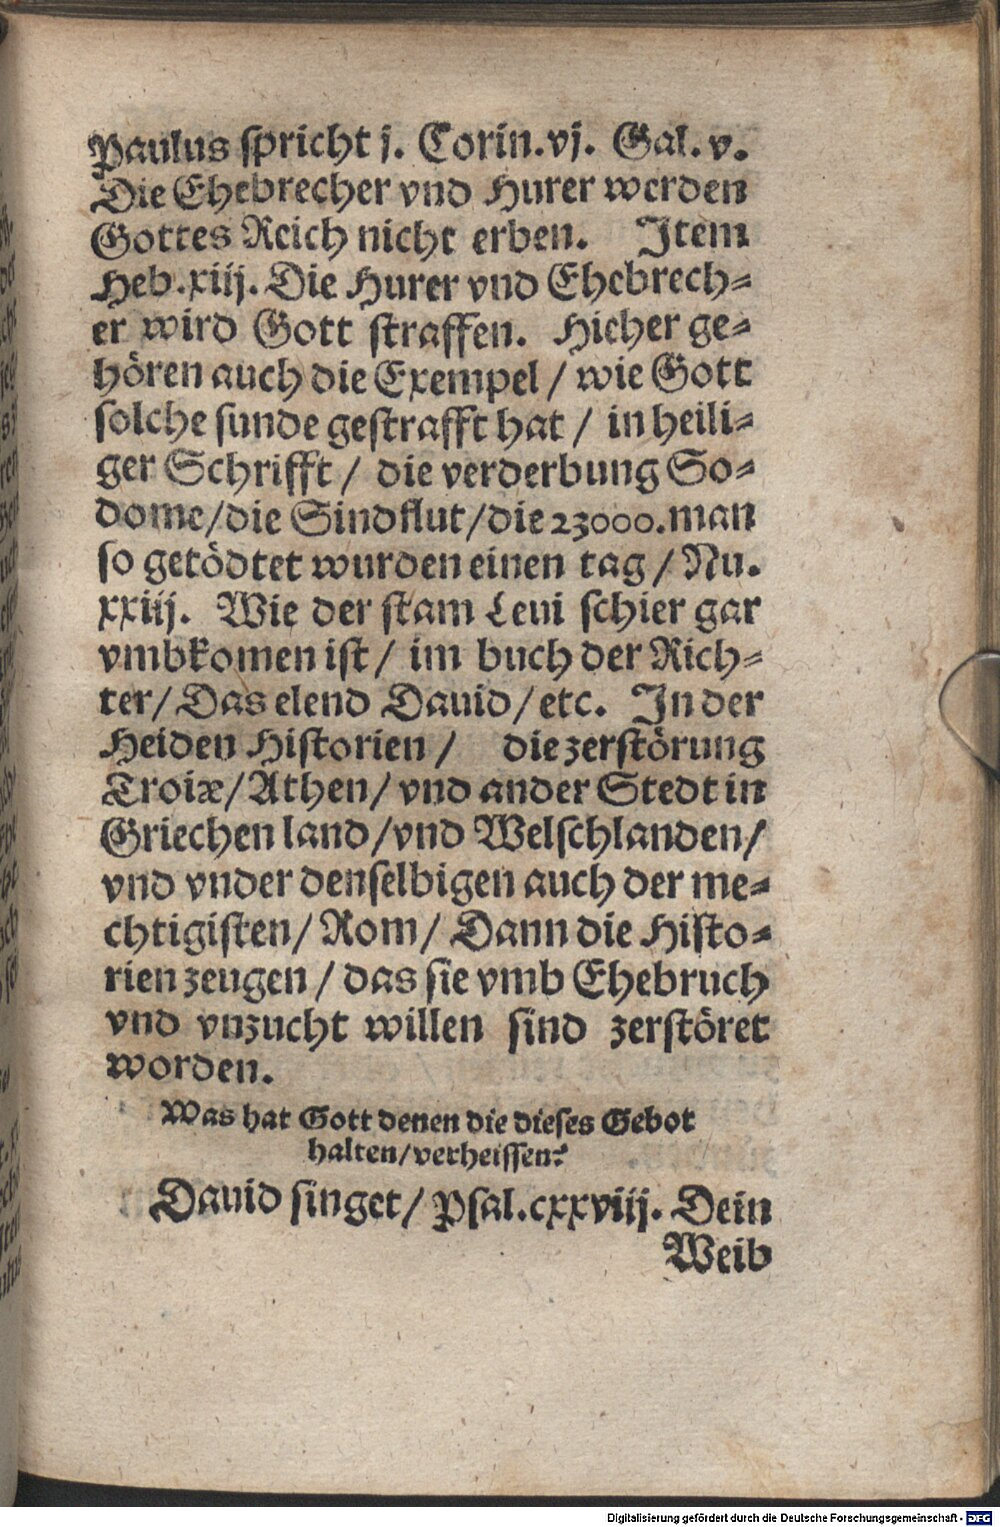 Paulus spricht j. Corin.vj. Gal. v.
Die Ehebrecher vnd Hurer werden
Gottes Reich nicht erben. Item
Heb.xiij. Die Hurer vnd Ehebrech⸗
er wird Gott straffen. Hieher ge⸗
hören auch die Exempel / wie Gott
solche sunde gestrafft hat / in heili⸗
ger Schrifft / die verderbung So⸗
dome/die Sindflut/die 23000.man
so getödtet wurden einen tag / Nu.
xxiij. Wie der stam Leui schier gar
vmbkomen ist / im buch der Rich⸗
ter/ Das elend Dauid/etc. In der
Heiden Historien / die zerstörung
Troiæ/Athen/ vnd ander Stedt in
Griechen land/vnd Welschlanden/
vnd vnder denselbigen auch der me⸗
chtigisten/ Rom/ Dann die Histo⸗
rien zeugen / das sie vmb Ehebruch
vnd vnzucht willen sind zerstöret
worden.
Was hat Gott denen die dieses Gebot
halten/verheissen?
Dauid singet/ Psal.cxxviij. Dein
Weib
Digitalisierung gefördert durch die Deutsche Forschungsgemeinschaft - DFG